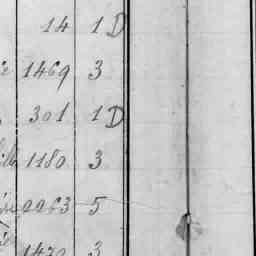 14 1 D
1469 3
301 1 D
1180 3
2263 5
1470 3